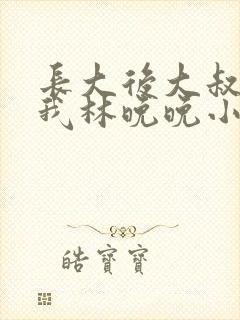 長大後大叔
我林晚晚小
皓寶寶